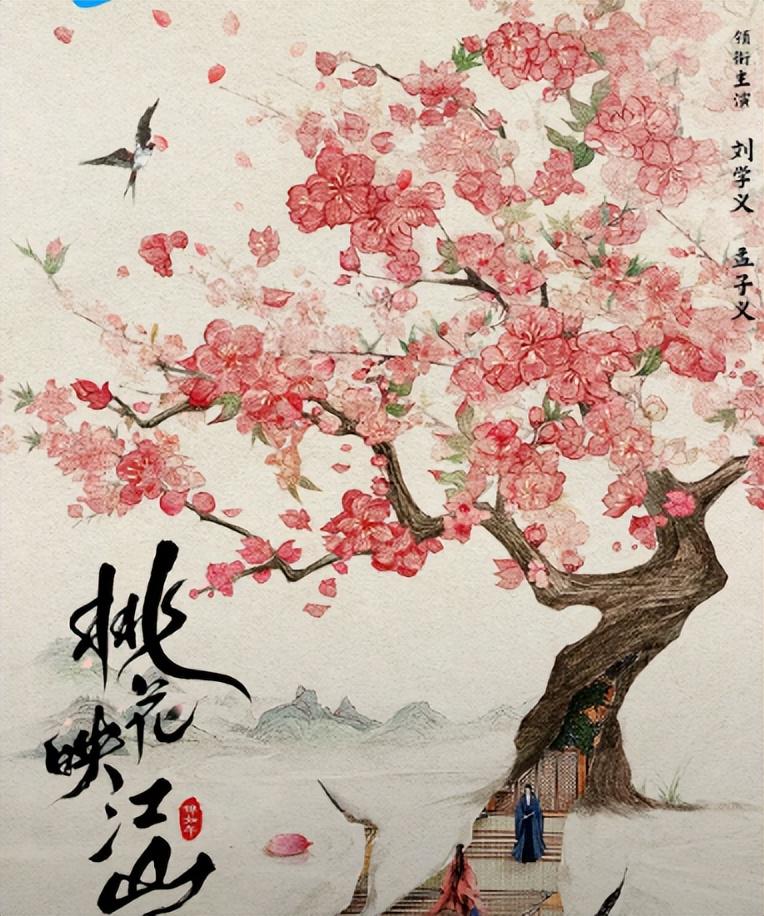 领衔主演
刘学义
孟子义
桃花映江山